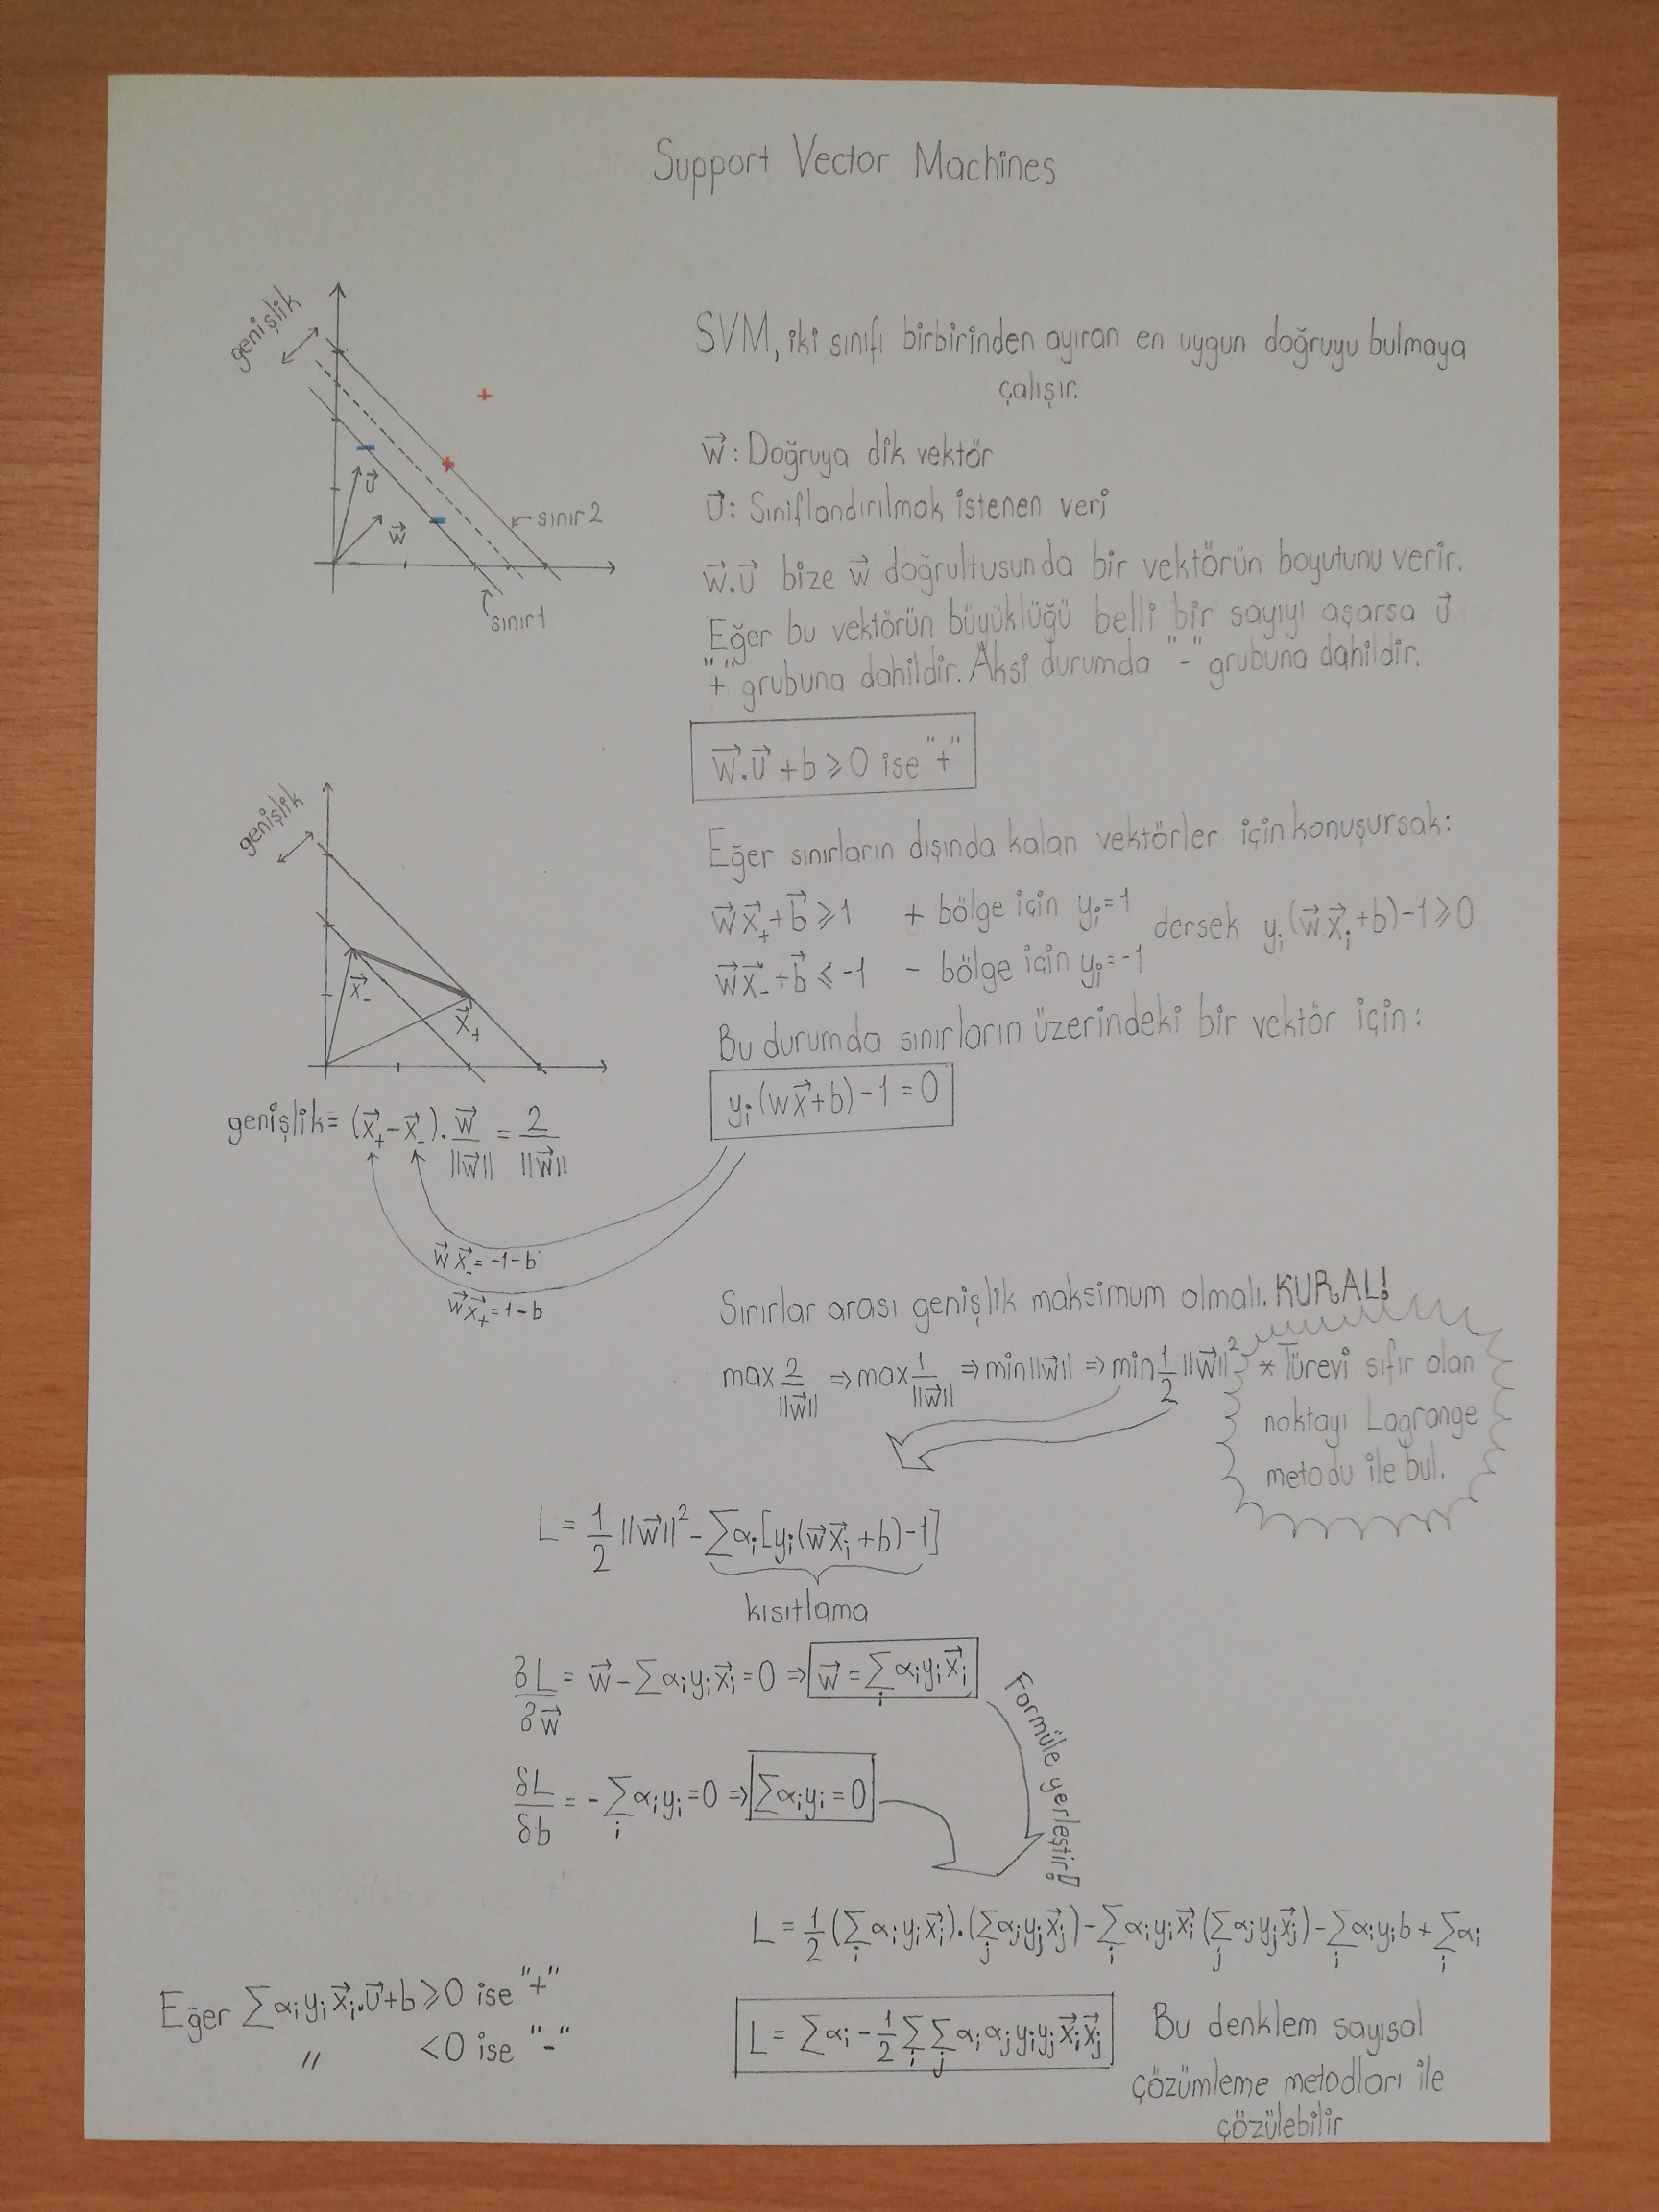 Support Vector Machines
genişlik
+
+
-
-
u⃗
w⃗
sınır 2
sınır 1
SVM, iki sınıfı birbirinden ayıran en uygun doğruyu bulmaya
çalışır.
w⃗: Doğruya dik vektör
u⃗: Sınıflandırılmak istenen veri
w⃗.u⃗ bize w⃗ doğrultusunda bir vektörün boyutunu verir.
Eğer bu vektörün büyüklüğü belli bir sayıyı aşarsa u⃗
"+" grubuna dahildir. Aksi durumda "-" grubuna dahildir.
w⃗.u⃗ + b ⩾ 0 ise "+"
Eğer sınırların dışında kalan vektörler için konuşursak:
w⃗x⃗₊ + b⃗ ⩾ 1 + bölge için yᵢ = 1 dersek yᵢ(w⃗x⃗ᵢ + b) - 1 ⩾ 0
w⃗x⃗₋ + b⃗ ⩽ -1 - bölge için yᵢ = -1
Bu durumda sınırların üzerindeki bir vektör için:
yᵢ(wx⃗ + b) - 1 = 0
genişlik
x⃗₋
x⃗₊
genişlik = (x⃗₊ - x⃗₋). w⃗/||w⃗|| = 2/||w⃗||
w⃗x⃗₋ = -1 - b
w⃗x⃗₊ = 1 - b
Sınırlar arası genişlik maksimum olmalı. KURAL!
max 2/||w⃗|| ⇒ max 1/||w⃗|| ⇒ min||w⃗|| ⇒ min 1/2 ||w⃗||²
* Türevi sıfır olan
noktayı Lagrange
metodu ile bul.
L = 1/2 ||w⃗||² - ∑αᵢ[yᵢ(w⃗x⃗ᵢ + b) - 1]
kısıtlama
∂L/∂w⃗ = w⃗ - ∑αᵢyᵢx⃗ᵢ = 0 ⇒ w⃗ = ∑ᵢ αᵢyᵢx⃗ᵢ
δL/δb = -∑ᵢ αᵢyᵢ = 0 ⇒ ∑αᵢyᵢ = 0
Formüle yerleştir!
L = 1/2 (∑ᵢ αᵢyᵢx⃗ᵢ).(∑ⱼ αⱼyⱼx⃗ⱼ) - ∑ᵢ αᵢyᵢx⃗ᵢ(∑ⱼ αⱼyⱼx⃗ⱼ) - ∑ᵢ αᵢyᵢb + ∑ᵢ αᵢ
L = ∑αᵢ - 1/2 ∑ᵢ ∑ⱼ αᵢαⱼyᵢyⱼx⃗ᵢx⃗ⱼ
Bu denklem sayısal
çözümleme metodları ile
çözülebilir
Eğer ∑αᵢyᵢx⃗ᵢ.u⃗ + b ⩾ 0 ise "+"
" < 0 ise "-"